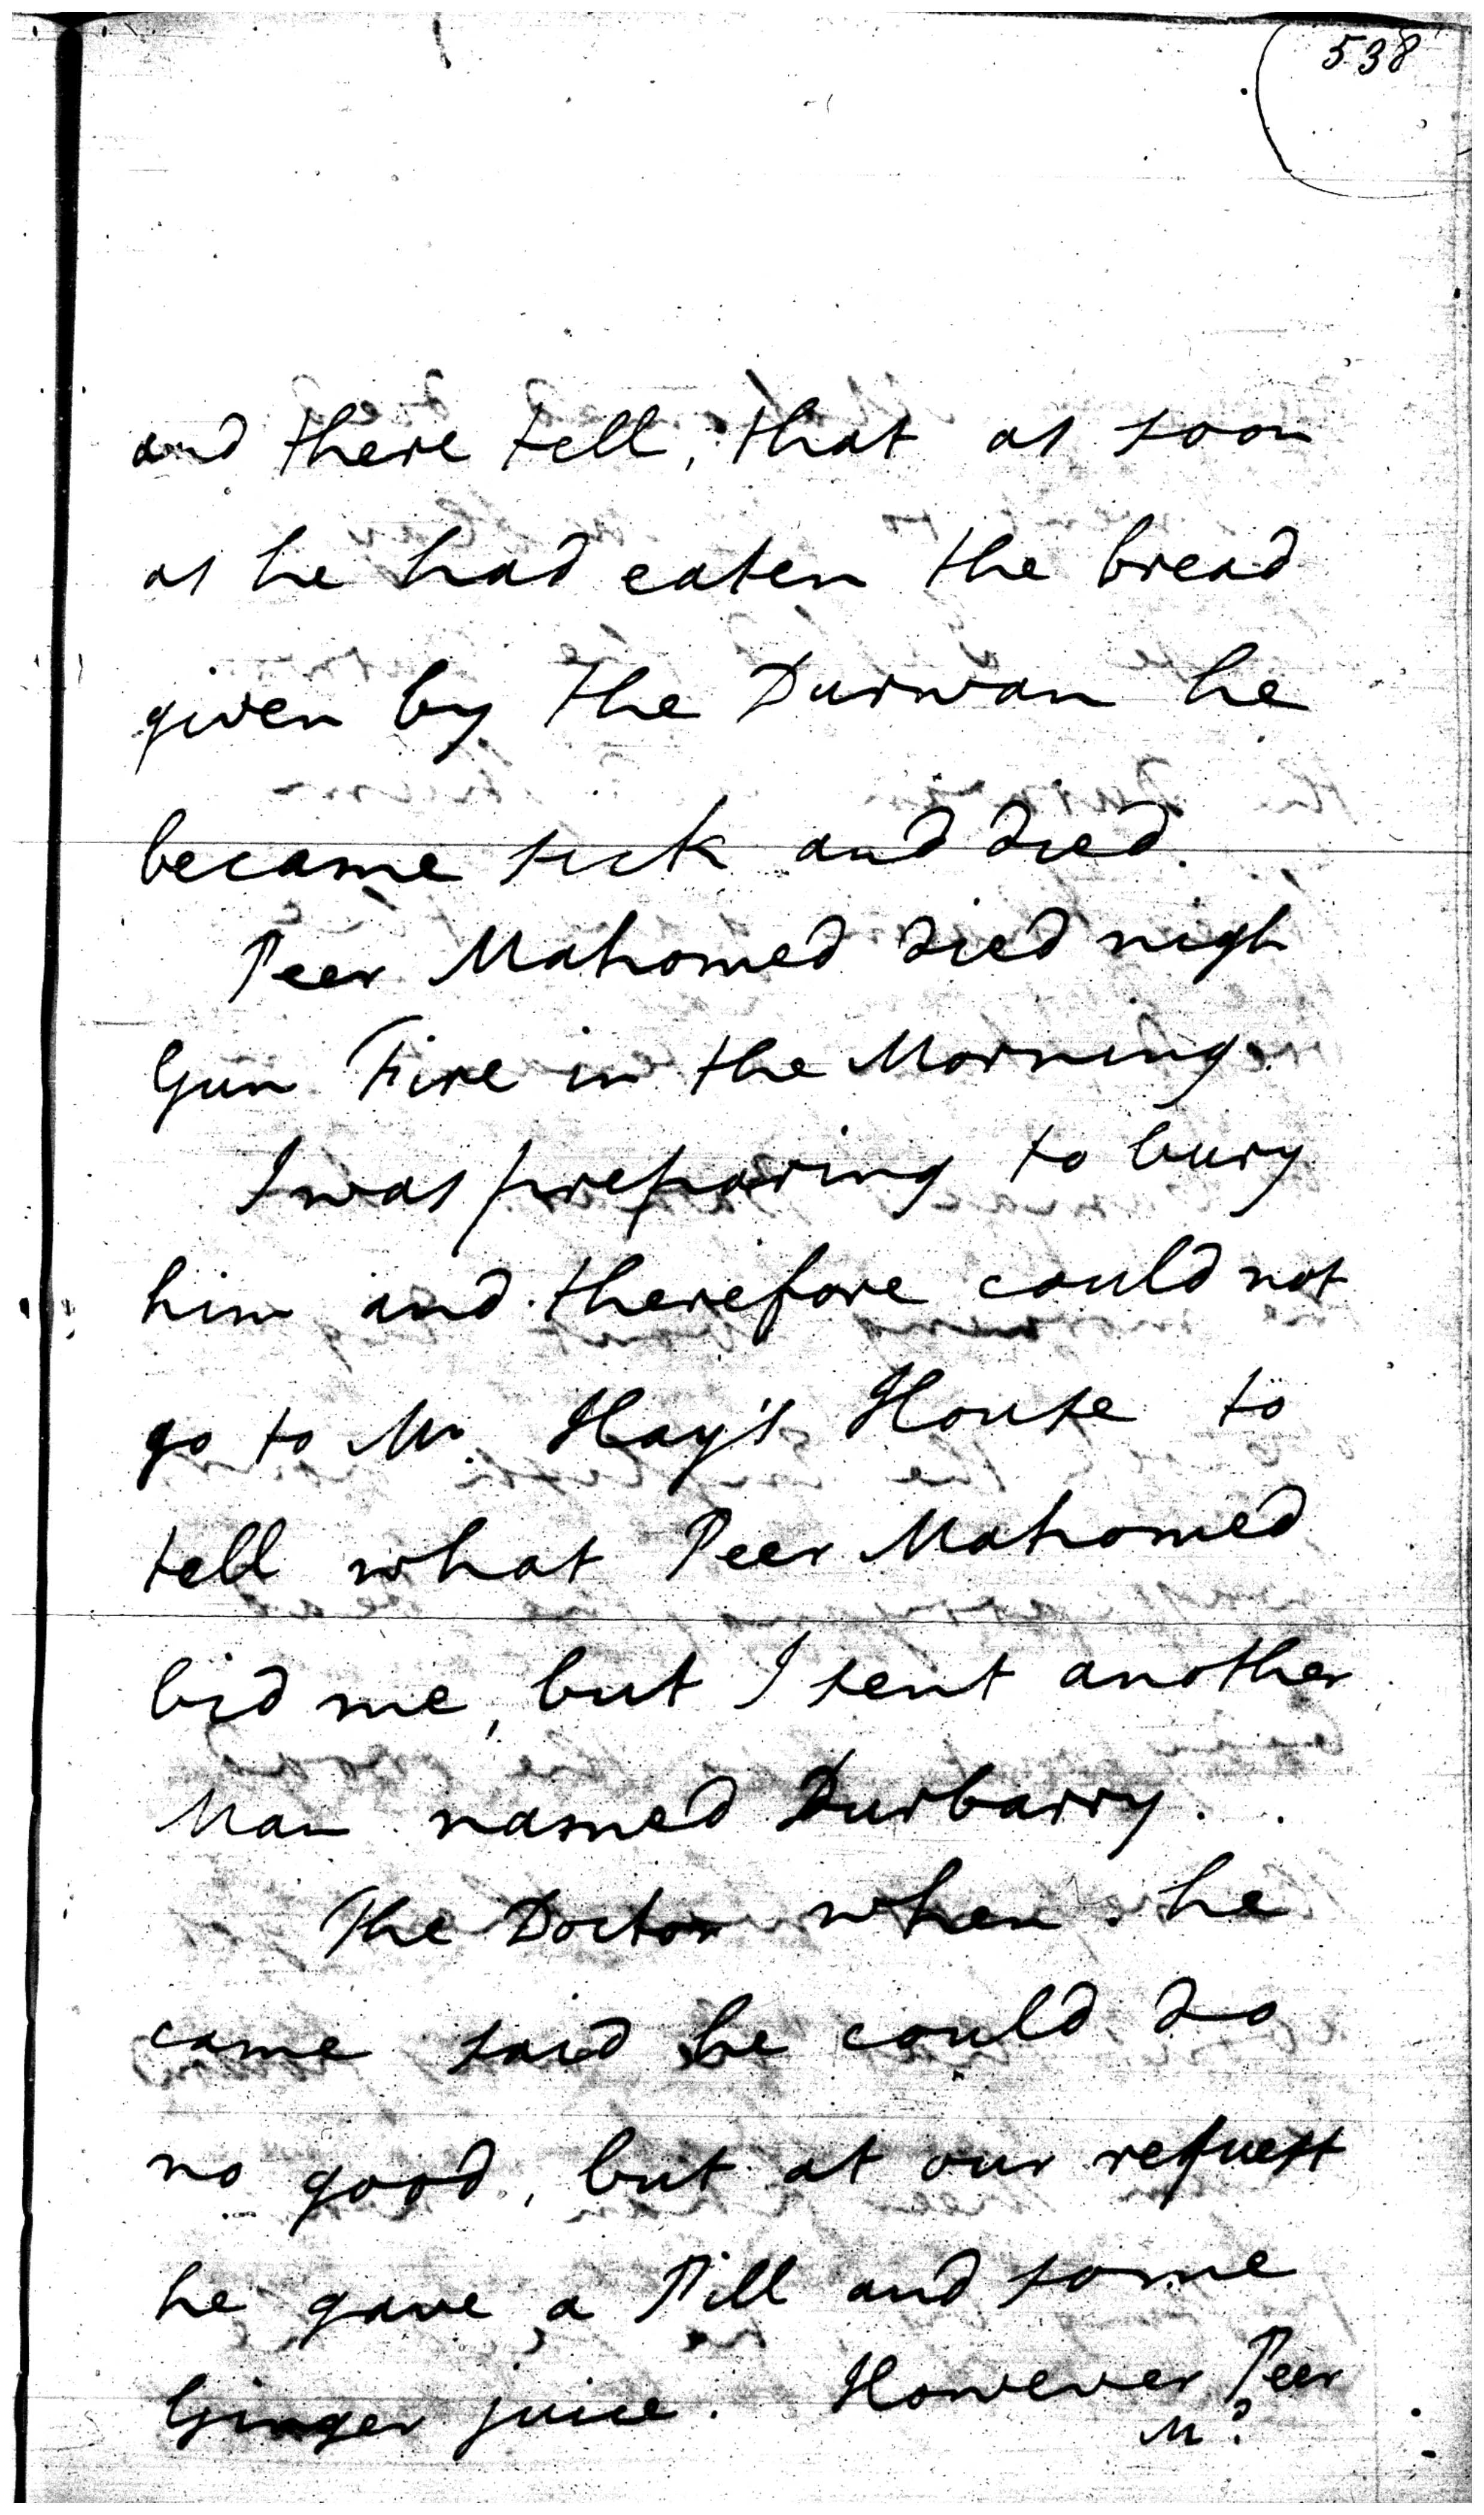 538
and there tell, that as soon
as he had eaten the bread
given by the Durwan he
became sick and died.
Peer Mahomed died nigh
Gun Fire in the Morning.
I was preparing to bury
him and therefore could not
go to Mr. Hay's House to
tell what Peer Mahomed
bid me, but I sent another
Man named Durbarry.
The Doctor when he
came said he could do
no good, but at our request
he gave a Pill and some
Ginger juice. However Peer
Md.